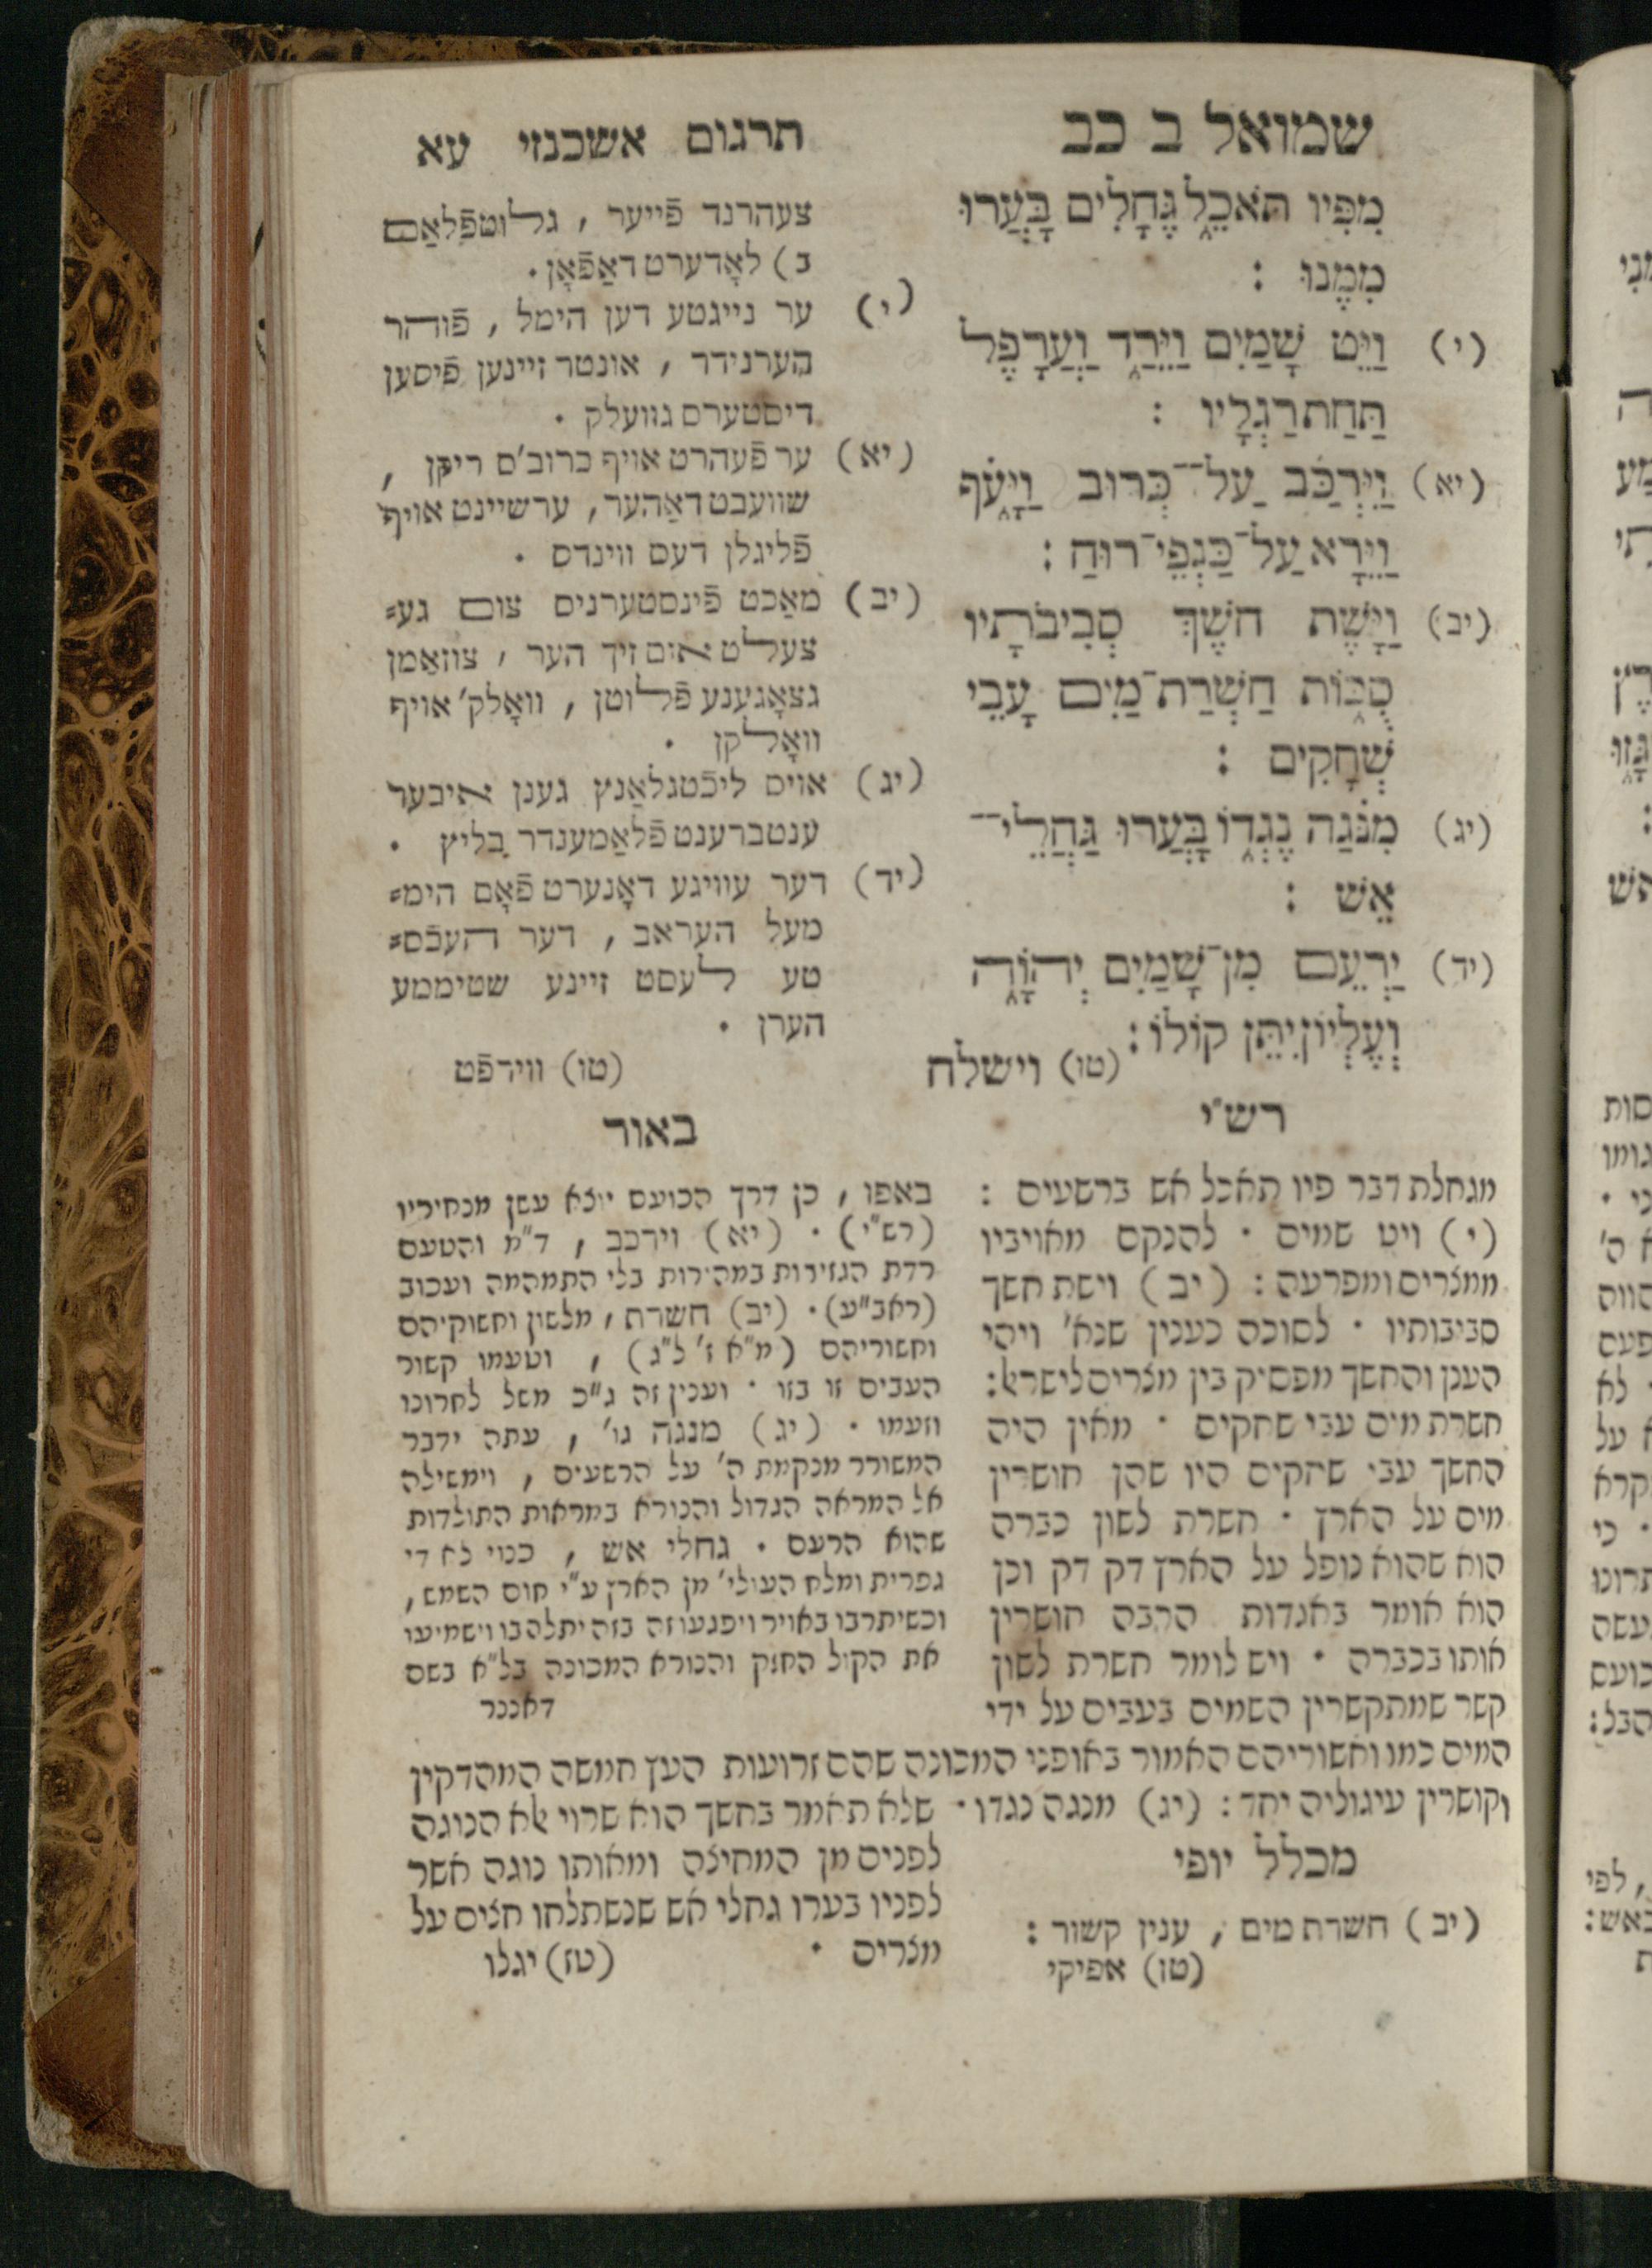 שמואל ב כב
מִפִּיו תֹּאכֵל גֶּחָלִים בָּעֲרוּ
מִמֶּנּוּ :
(י) וַיֵּט שָׁמַיִם וַיֵּרַד וַעֲרָפֶל
תַּחַת רַגְלָיו :
(יא) וַיִּרְכַּב עַל־כְּרוּב וַיָּעֹף
וַיֵּרָא עַל־כַּנְפֵי־רוּחַ :
(יב) וַיָּשֶׁת חֹשֶׁךְ סְבִיבֹתָיו
סֻכּוֹת חַשְׁרַת־מַיִם עָבֵי
שְׁחָקִים :
(יג) מִנֹּגַהּ נֶגְדּוֹ בָּעֲרוּ גַּחֲלֵי־
אֵשׁ :
(יד) יַרְעֵם מִן־שָׁמַיִם יְהוָֹה
וְעֶלְיוֹן יִתֵּן קוֹלוֹ :
(טו) וישלח
תרגום אשכנזי עא
צעהרנד פֿייער , גלוטפֿלאַם
ב) לאָדערט דאַפֿאָן .
(י) ער נייגטע דען הימל , פֿוהר
הערנידר , אונטר זיינען פֿיסען
דיסטערס גוועלק .
(יא) ער פֿעהרט אויף כרוב'ס ריקן ,
שוועבט דאַהער , ערשיינט אויף
פֿליגלן דעס ווינדס .
(יב) מאַכט פֿינסטערניס צום גע=
צעלט אום זיך הער , צוזאַמן
גצאָגענע פֿלוטן , וואָלק' אויף
וואָלקן .
(יג) אויס ליכֿטגלאַנץ געגן איבער
ענטברענט פֿלאַמענדר בליץ .
(יד) דער עוויגע דאָנערט פֿאָם הימ=
מעל העראב , דער העכֿס=
טע לעסט זיינע שטיממע
הערן .
(טו) ווירפֿט
רש"י
מגחלת דבר פיו תאכל אש ברשעים :
(י) ויט שמים . להנקם מאויביו
ממצרים ומפרעה : (יב) וישת חשך
סביבותיו . לסוכה כענין שנא' ויהי
הענן והחשך מפסיק בין מצרים לישראל :
חשרת מים עבי שחקים . מאין היה
החשך עבי שחקים היו שהן חושרין
מים על הארץ . חשרת לשון כברה
הוא שהוא נופל על הארץ דק דק וכן
הוא אומר באגדות הרבה חושרין
אותו בכברה . ויש לומר חשרת לשון
קשר שמתקשרין השמים בעבים על ידי
המים כמו וחשוריהם האמור באופני המכונה שהם זרועות העץ חמשה המהדקין
וקושרין עיגוליה יחד : (יג) מנגה נגדו . שלא תאמר בחשך הוא שרוי אלא הנוגה
לפנים מן המחיצה ומאותו נוגה אשר
לפניו בערו גחלי אש שנשתלחו חצים על
מצרים .
(טז) יגלו
באור
באפו , כן דרך הכועס יוצא עשן מנחיריו
(רש"י) . (יא) וירכב , ד"מ והטעם
רדת הגזירות במהירות בלי התמהמה ועכוב
(ראב"ע) . (יב) חשרת , מלשון וחשוקיהם
וחשוריהם (מ"א ז' ל"ג) , וטעמו קשור
העבים זו בזו . וענין זה ג"כ משל לחרונו
וזעמו . (יג) מנגה גו' , עתה ידבר
המשורר מנקמת ה' על הרשעים , וימשילה
אל המראה הגדול והנורא במראות התולדות
שהוא הרעם . גחלי אש , כנוי לאדי
גפרית ומלח העולי' מן הארץ ע"י חום השמש ,
וכשיתרבו באויר ויפגעו זה בזה יתלהבו וישמיעו
את הקול החזק והנורא המכונה בל"א בשם
דאננר
מכלל יופי
(יב) חשרת מים , ענין קשור :
(טז) אפיקי